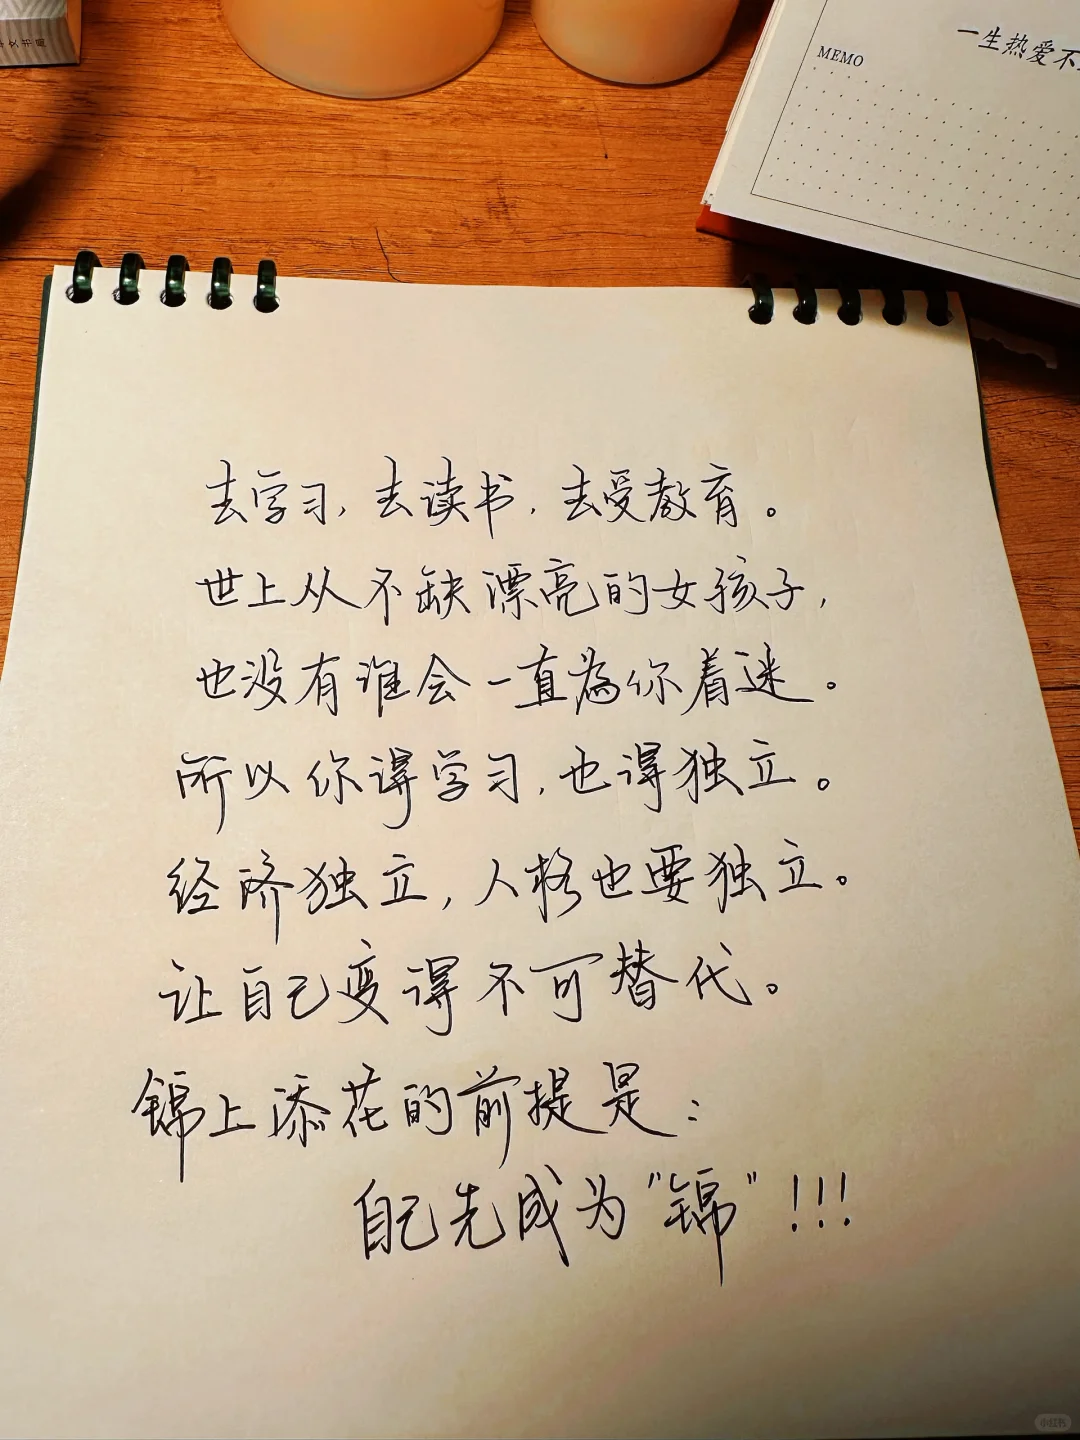 MEMO
一生热爱不
去学习,去读书,去受教育。
世上从不缺漂亮的女孩子,
也没有谁会一直為你着迷。
所以你得学习,也得独立。
经济独立,人格也要独立。
让自己变得不可替代。
锦上添花的前提是:
自己先成为"锦"!!!
小红书